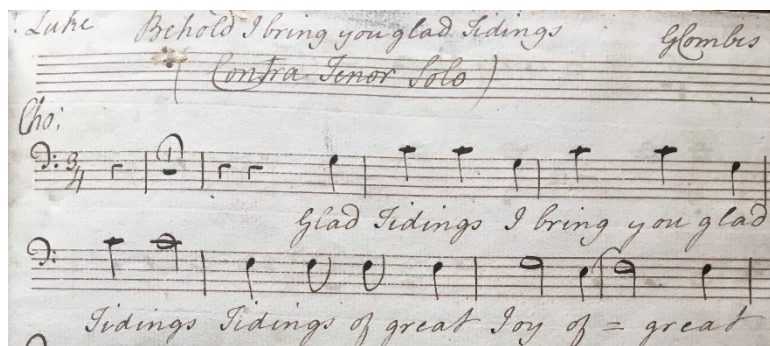 : Luke Behold I bring you glad Tidings GCombes
( Contra Tenor Solo )
Cho:
3/4 1
Glad Tidings I bring you glad
Tidings Tidings of great Joy of = great